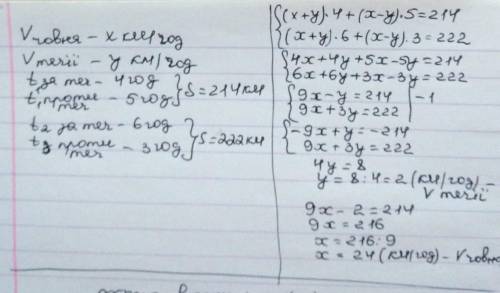 Vчовня – x км/год
Vтечії – y км/год
t₁ за теч – 4 год
t₁ проти теч – 5 год } S = 214 км
t₂ за теч – 6 год
t₂ проти теч – 3 год } S = 222 км
{(x+y)·4+(x-y)·5=214
(x+y)·6+(x-y)·3=222
{4x+4y+5x-5y=214
6x+6y+3x-3y=222
{9x-y=214 | -1
9x+3y=222
{-9x+y=-214
9x+3y=222
4y=8
y=8:4=2 (км/год) –
V течії
9x-2=214
9x=216
x=216:9
x=24 (км/год) – Vчовна